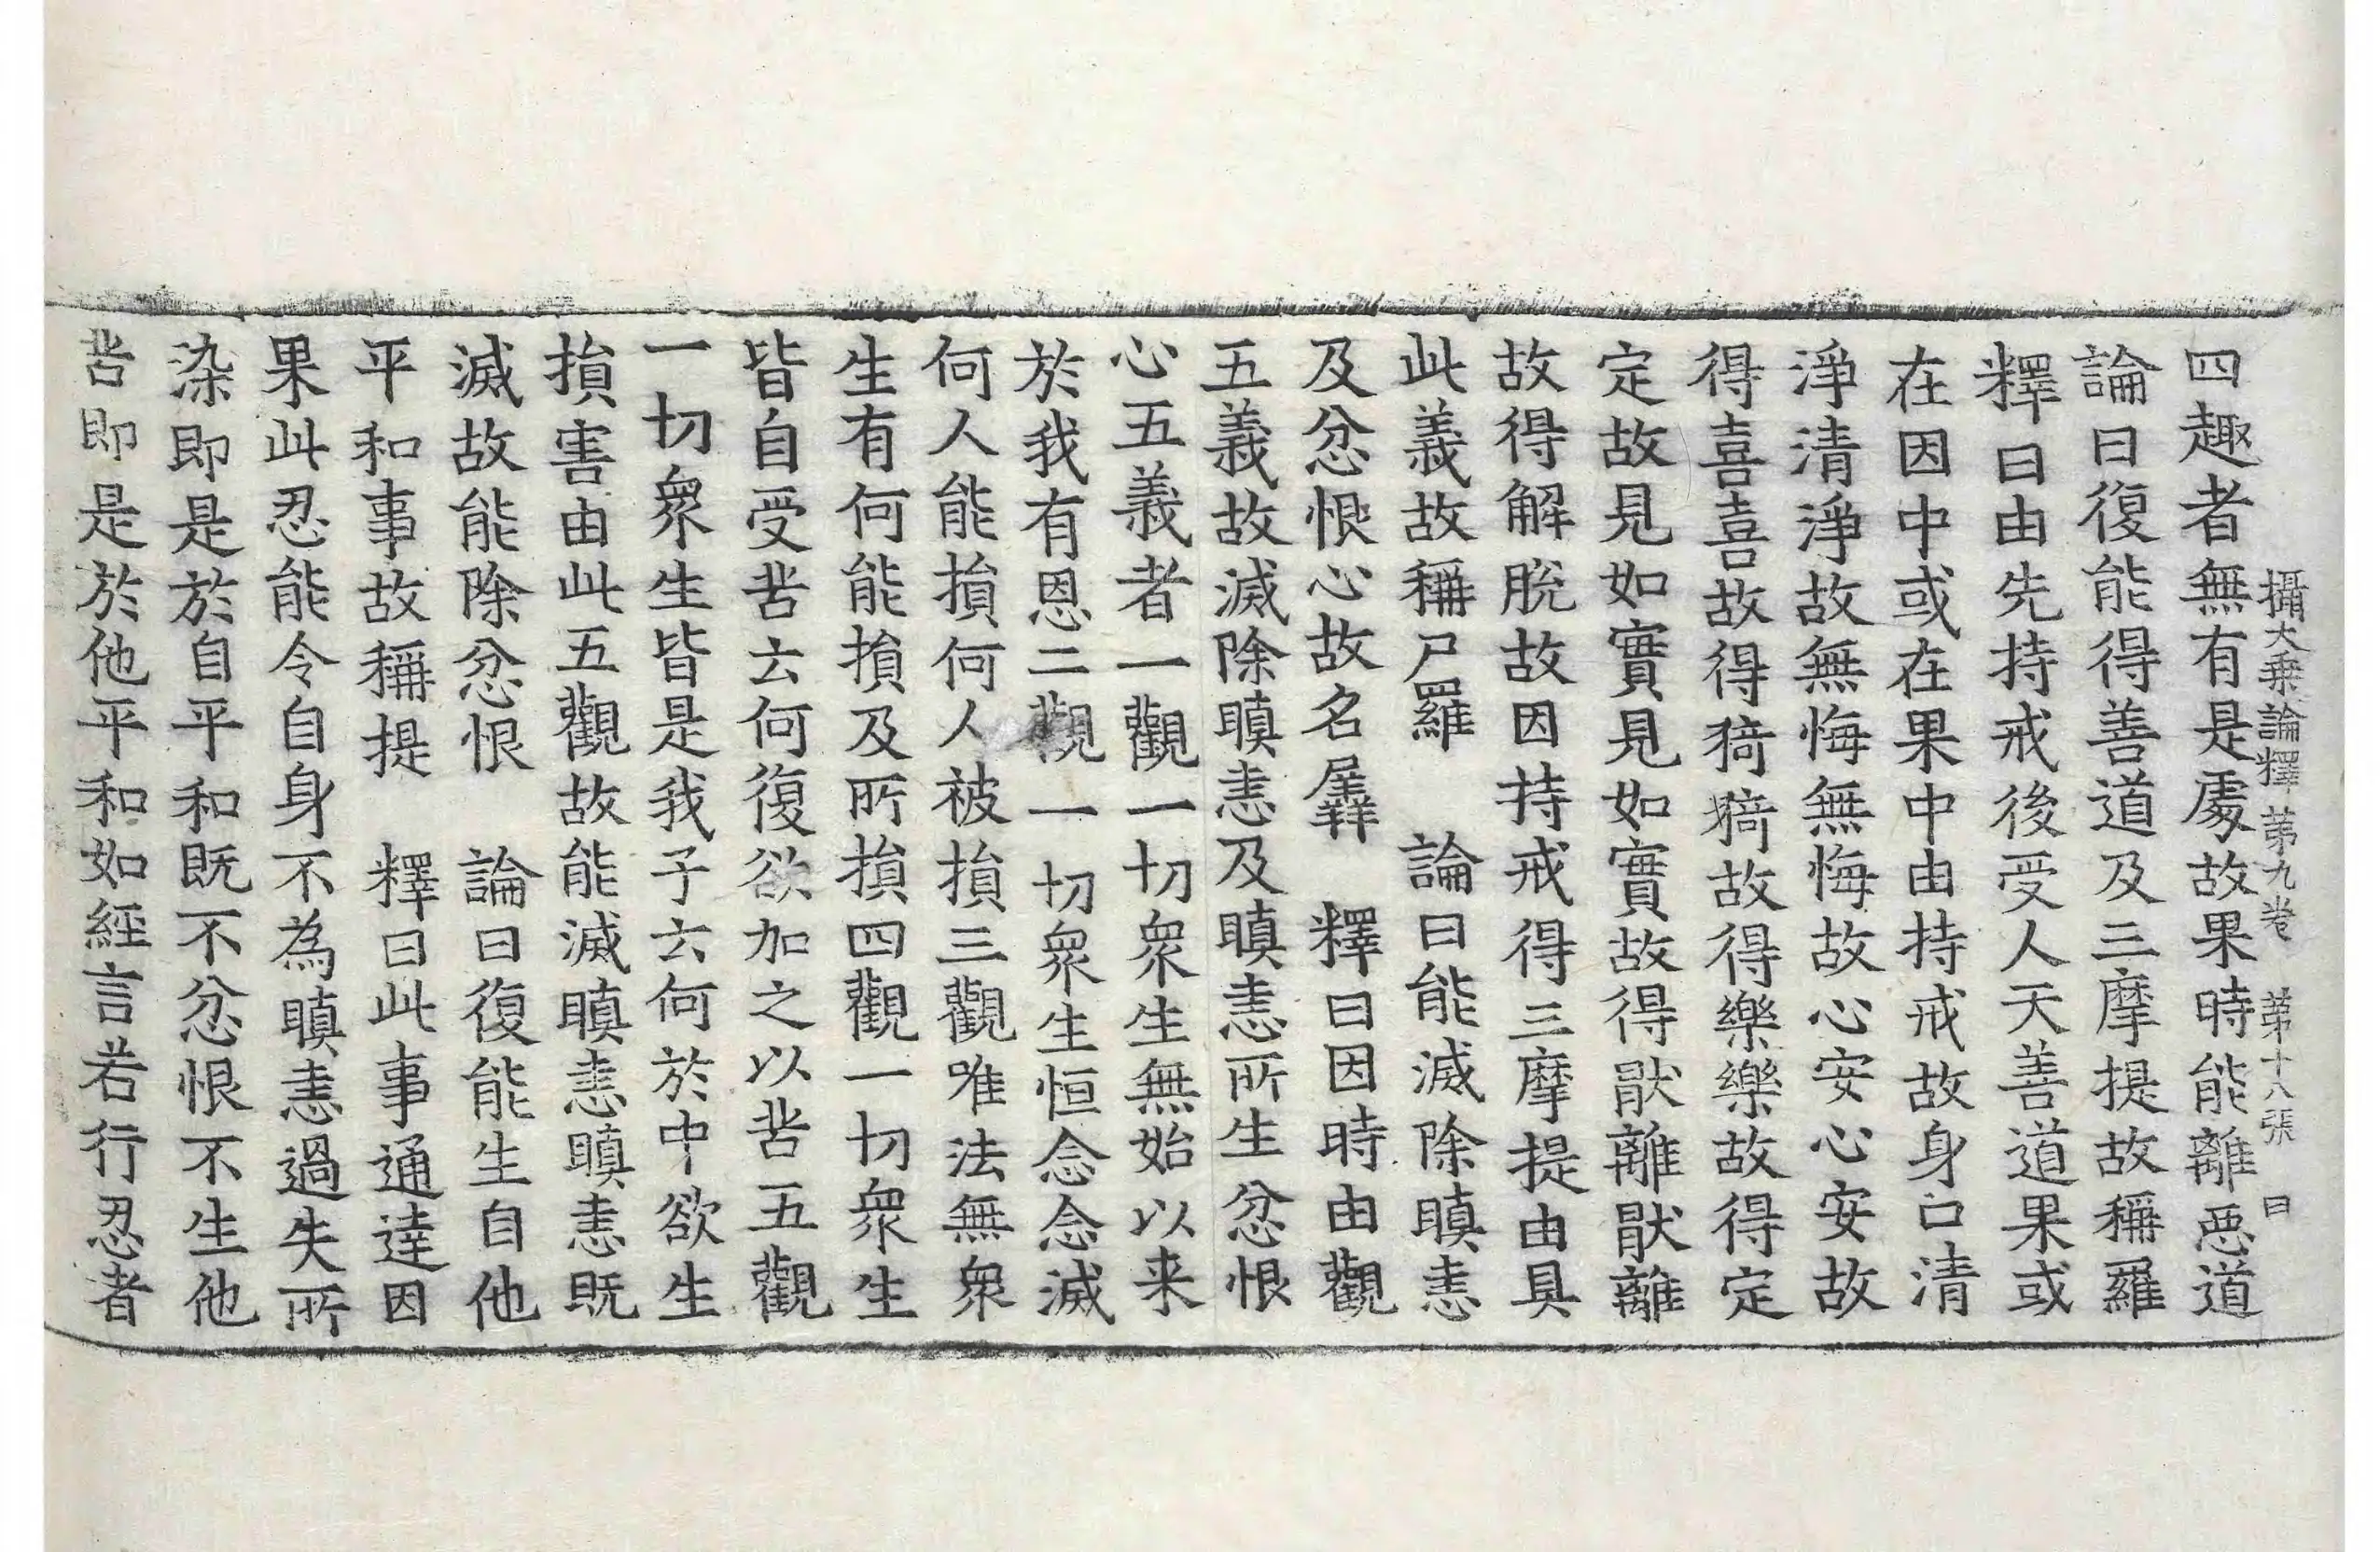 攝大乗論釋 第九卷 第十八張 曰
四趣者無有是處故果時能離惡道
論曰復能得善道及三摩提故稱羅
釋曰由先持戒後受人天善道果或
在因中或在果中由持戒故身口清
淨清淨故無悔無悔故心安心安故
得喜喜故得猗猗故得樂樂故得定
定故見如實見如實故得猒離猒離
故得解脫故因持戒得三摩提由具
此義故稱尸羅 論曰能滅除瞋恚
及忿恨心故名羼 釋曰因時由觀
五義故滅除瞋恚及瞋恚所生忿恨
心五義者一觀一切衆生無始以来
於我有恩二觀一切衆生恒念念滅
何人能損何人被損三觀唯法無衆
生有何能損及所損四觀一切衆生
皆自受苦云何復欲加之以苦五觀
一切衆生皆是我子云何於中欲生
損害由此五觀故能滅瞋恚瞋恚既
滅故能除忿恨 論曰復能生自他
平和事故稱提 釋曰此事通達因
果此忍能令自身不為瞋恚過失所
染即是於自平和既不忿恨不生他
苦即是於他平和如經言若行忍者